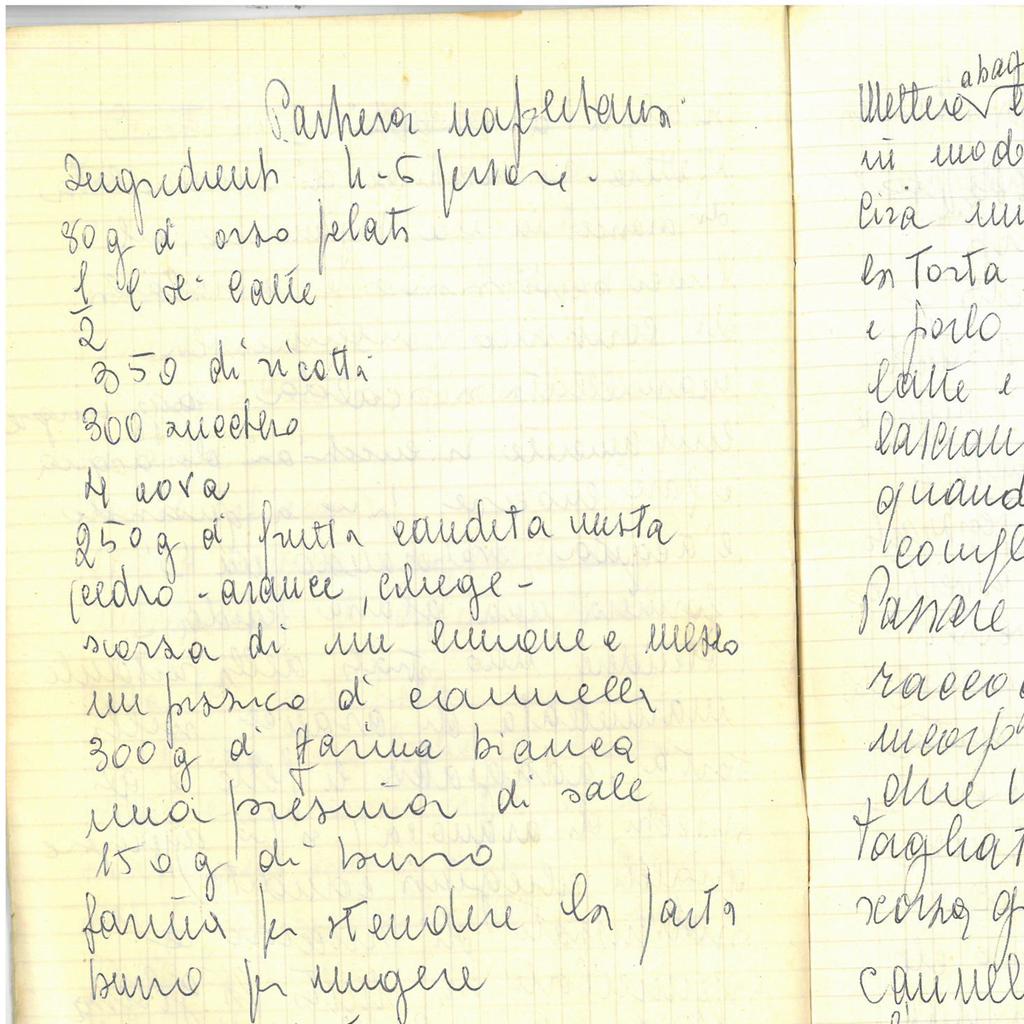 Pastiera napoletana
Ingredienti 4-6 persone.
80 g d'orzo pelato
1/2 l di latte
350 di ricotta
300 zucchero
4 uova
250 g di frutta candita mista
(cedro - arance, ciliege -
scorza di un limone e mezzo
un pizzico di cannella
300 g di farina bianca
una presina di sale
150 g di burro
farina per stendere la pasta
burro per ungere
Mettere a bag
in mod
la Torta
e porlo
latte e
lascian
quand
Passare
racco
incorp
due
Tagliat
scorza g
cannel